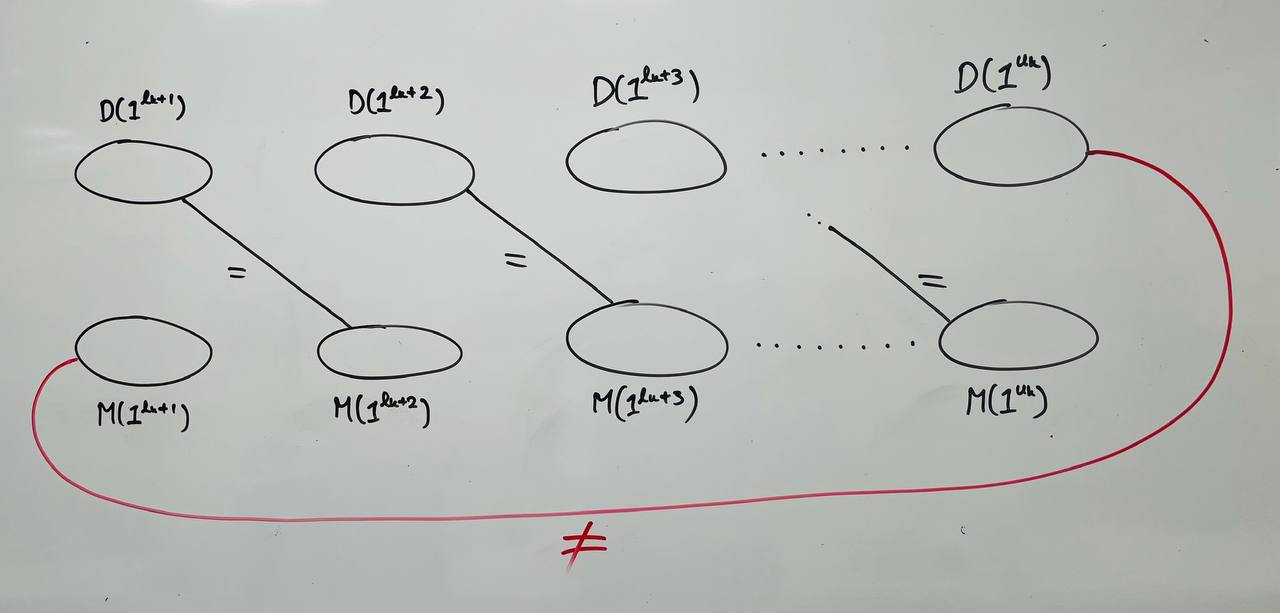 D(1^{lk+1}) D(1^{lk+2}) D(1^{lk+3}) ........ D(1^{uk})
= = =
........
M(1^{lk+1}) M(1^{lk+2}) M(1^{lk+3}) M(1^{uk})
≠